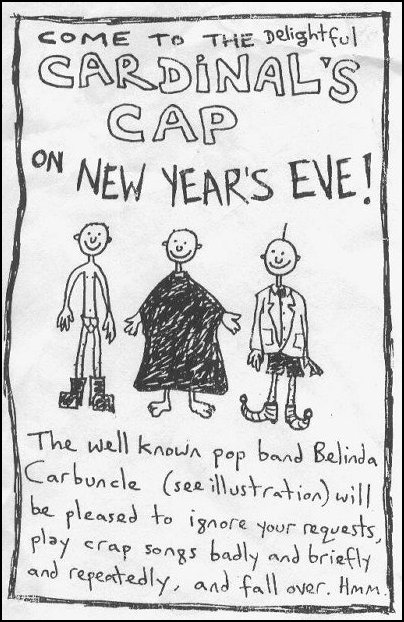 COME TO THE Delightful
CARDINAL'S
CAP
ON NEW YEAR'S EVE!
The well known pop band Belinda
Carbuncle (see illustration) will
be pleased to ignore your requests,
play crap songs badly and briefly
and repeatedly, and fall over. Hmm.